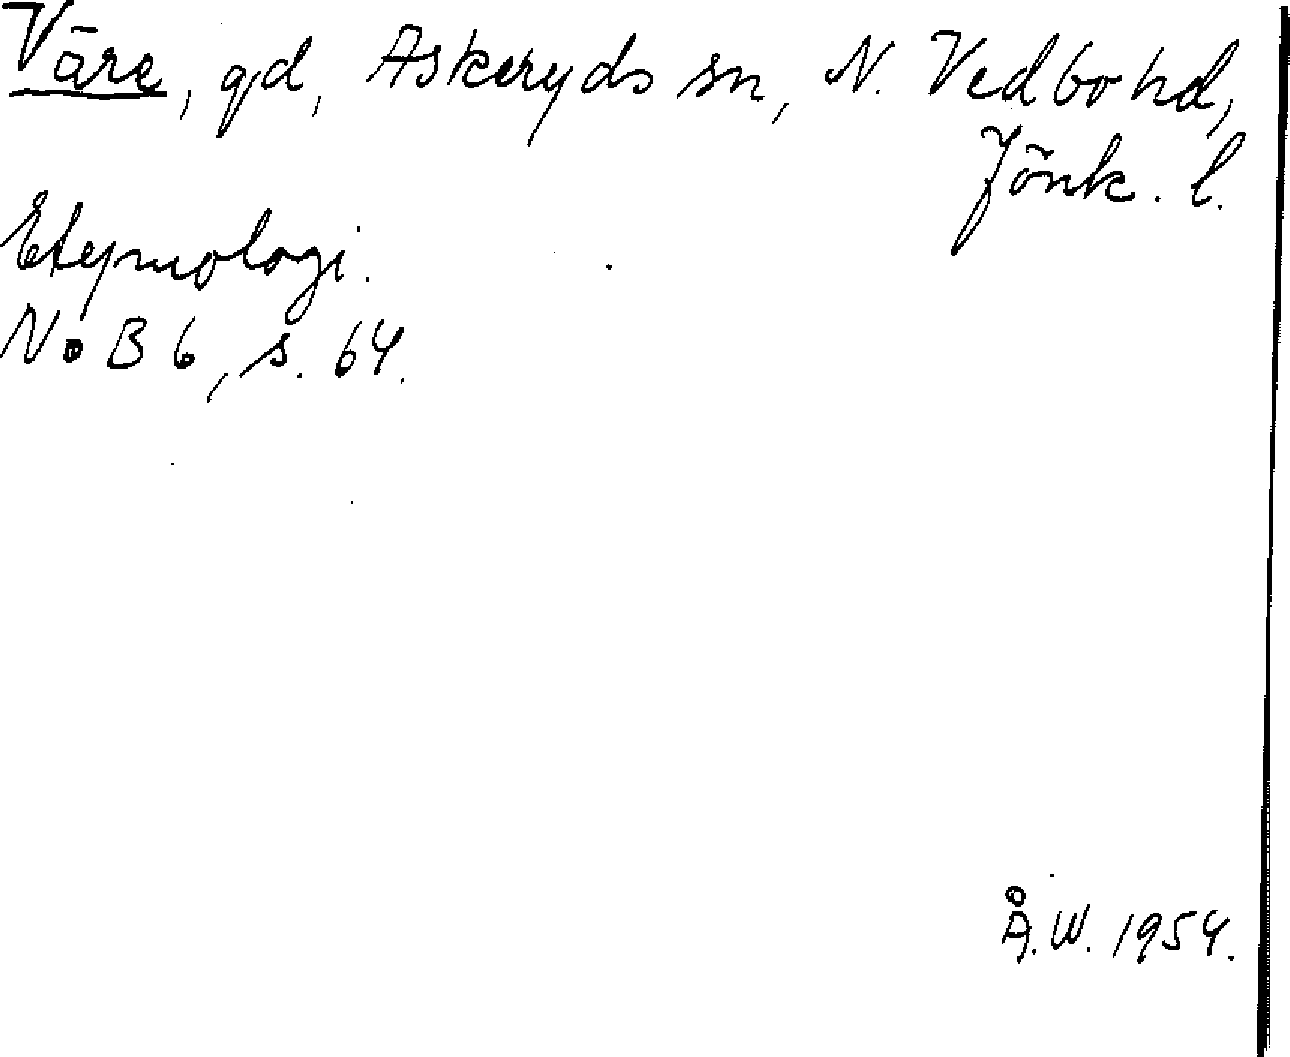 Väre, gd, Askeryds sn, N. Vedbo hd,
Jönk. l.
Etymologi.
NoB 6, s. 64.
Å.W. 1954.